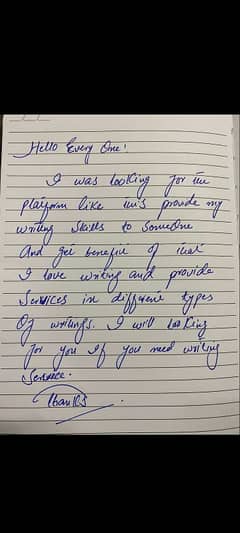 Hello Every One!
I was looking for the
platform like this provide my
writing skills to someone
And get benefit of that
I love writing and provide
Services in different types
Of writings. I will looking
for you if you need writing
Service.
Thanks